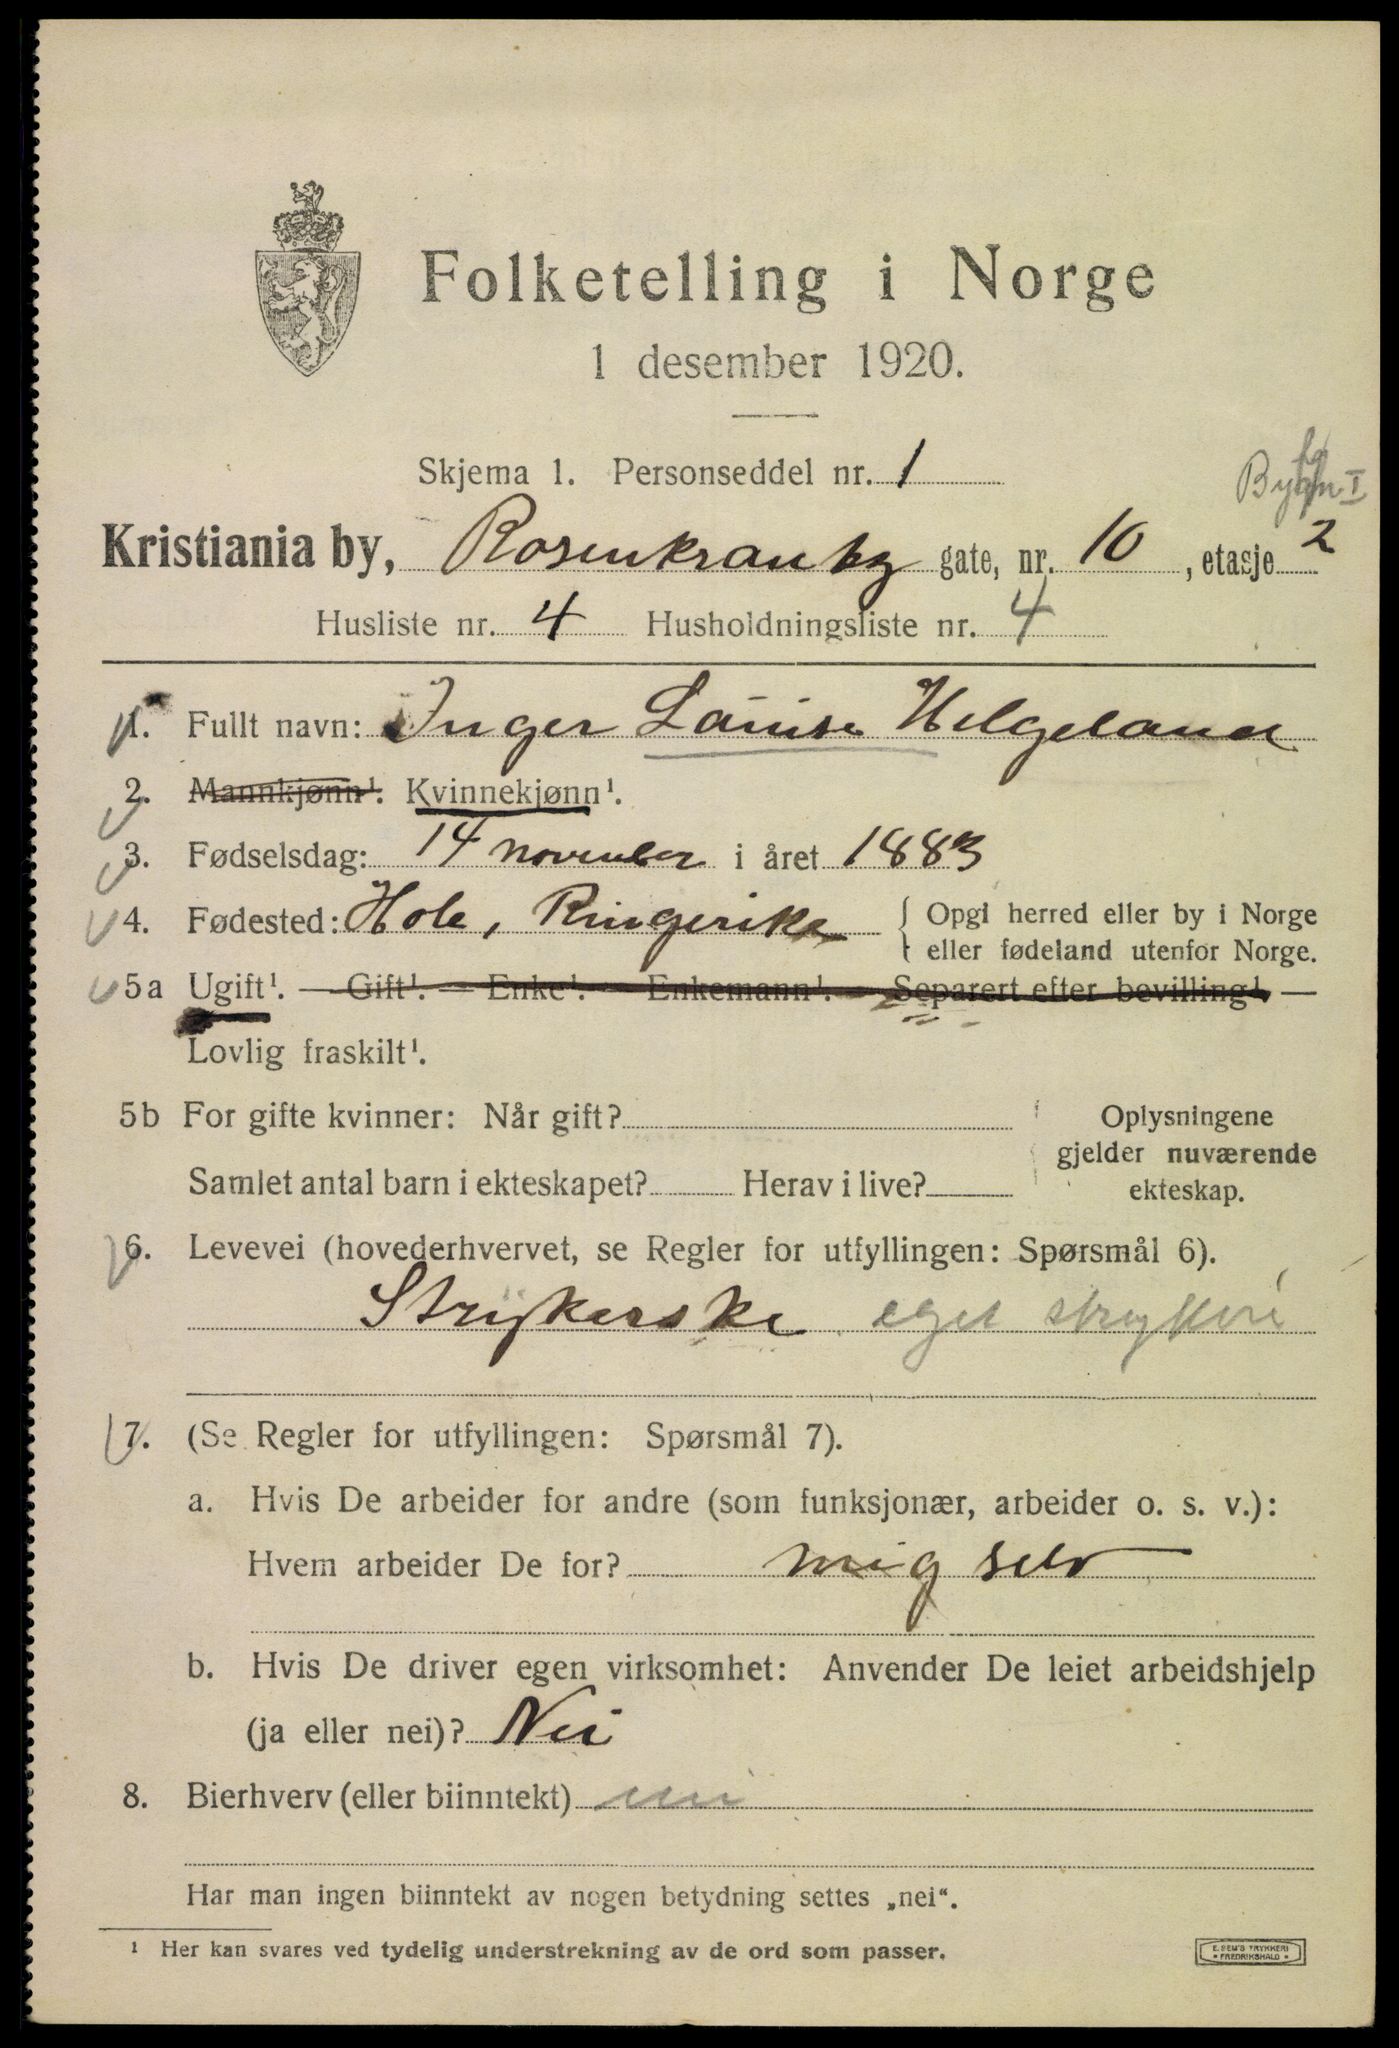 Folketelling i Norge
1 desember 1920.
Skjema 1. Personseddel nr. 1
Kristiania by, Rosenkrantz gate, nr. 10, etasje 2
Husliste nr. 4 Husholdningsliste nr. 4
1. Fullt navn: Inger Louise Helgeland
2. Mannkjønn¹. Kvinnekjønn¹.
3. Fødselsdag: 14 november i året 1883
4. Fødested: Hole, Ringerike { Opgi herred eller by i Norge
eller fødeland utenfor Norge.
5a Ugift¹. — Gift¹. — Enke¹. — Enkemann¹. — Separert efter bevilling¹. —
Lovlig fraskilt¹.
5b For gifte kvinner: Når gift?
Samlet antal barn i ekteskapet? Herav i live?
Oplysningene
gjelder nuværende
ekteskap.
6. Levevei (hovederhvervet, se Regler for utfyllingen: Spørsmål 6).
Strykerske eget strykeri
7. (Se Regler for utfyllingen: Spørsmål 7).
a. Hvis De arbeider for andre (som funksjonær, arbeider o. s. v.):
Hvem arbeider De for? mig selv
b. Hvis De driver egen virksomhet: Anvender De leiet arbeidshjelp
(ja eller nei)? Nei
8. Bierhverv (eller biinntekt) nei
Har man ingen biinntekt av nogen betydning settes „nei“.
¹ Her kan svares ved tydelig understrekning av de ord som passer.
E. SEM'S TRYKKERI
FREDRIKSHALD